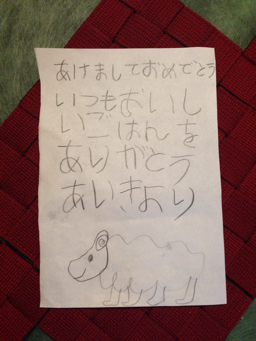 あけましておめでとう
いつもおいし
いごはんを
ありがとう
あいきより